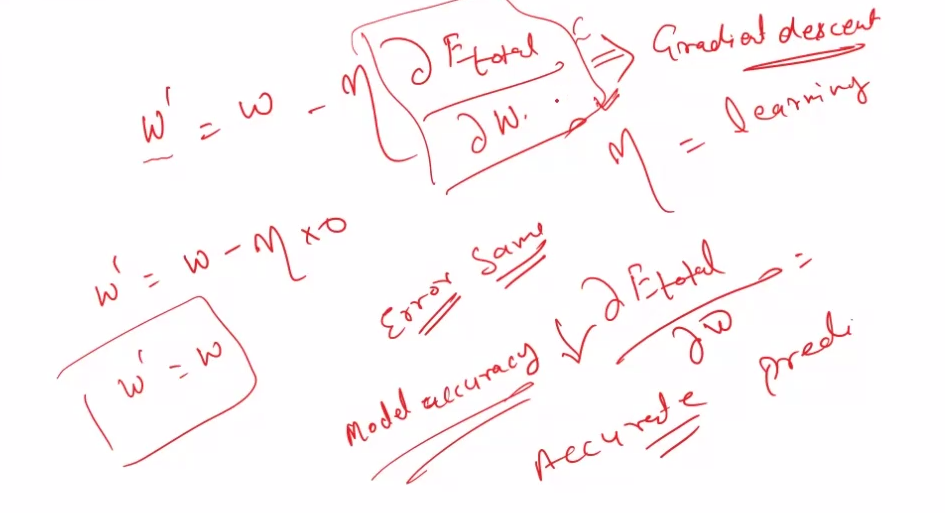 w' = w - η ∂Etotal / ∂w. ⇒ Gradient descent
η = learning
w' = w - η x 0
Error Same
w' = w
Model accuracy ↓
∂Etotal / ∂w =
Accurate predi